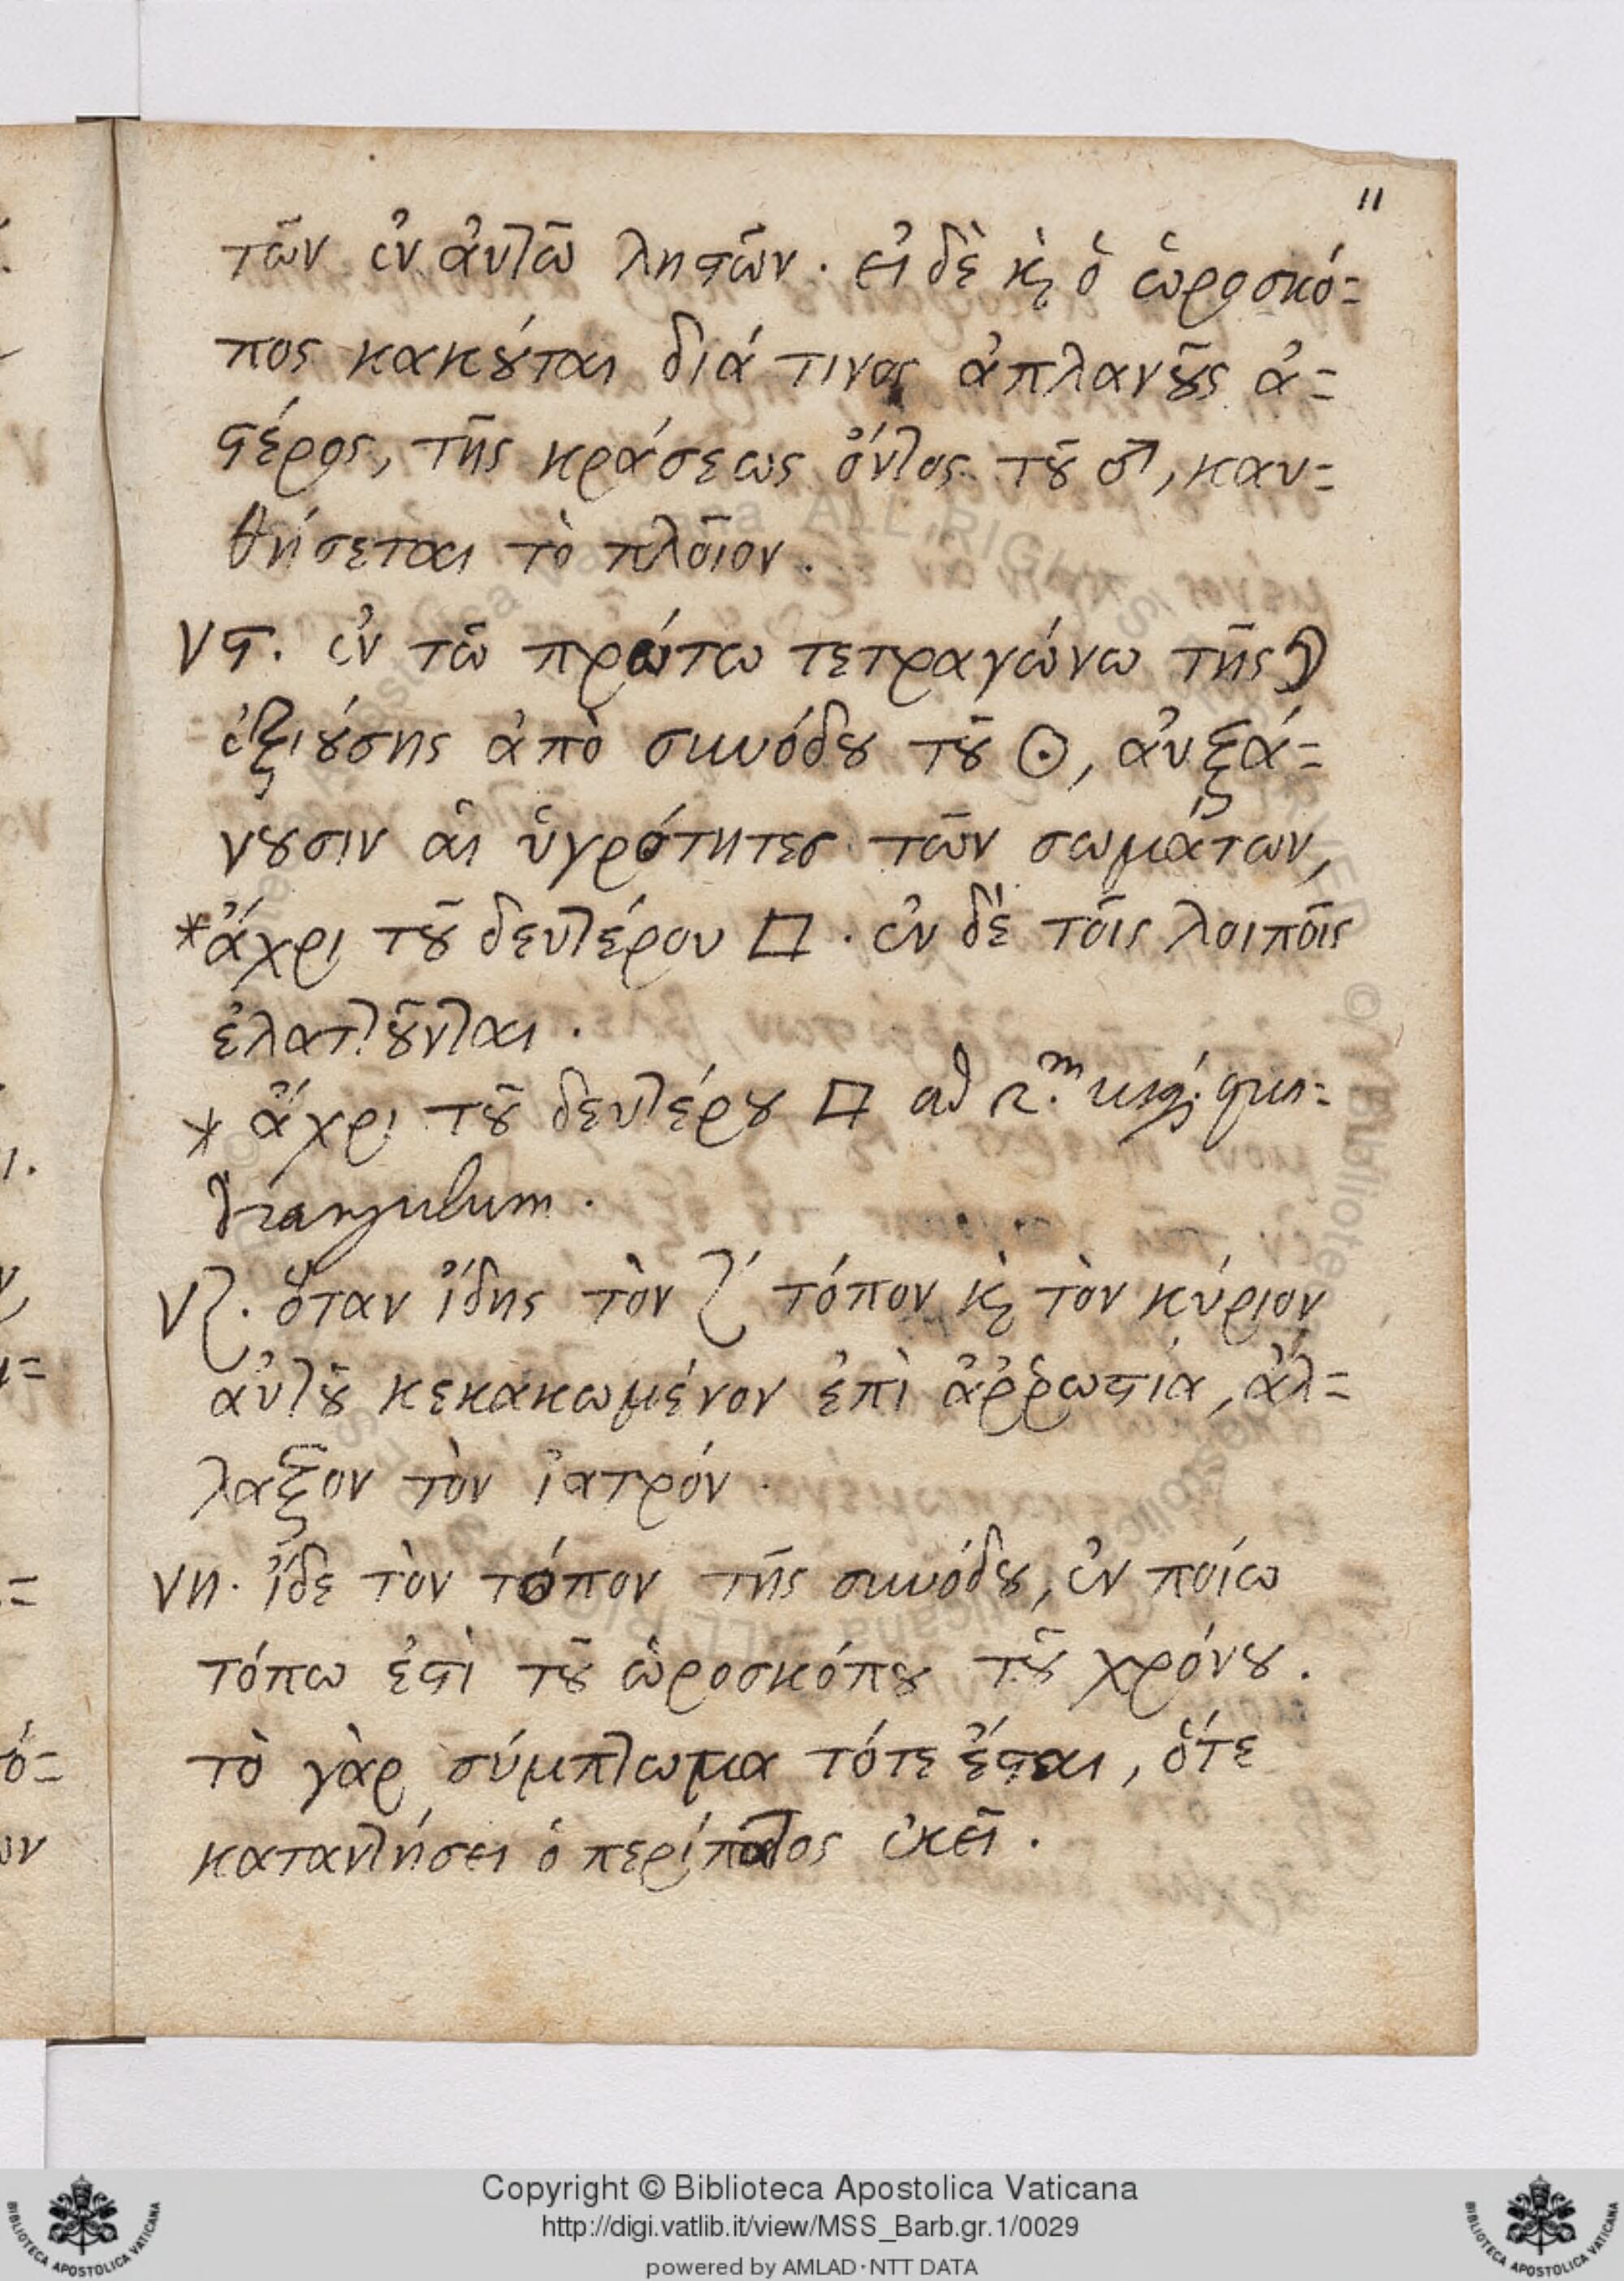 11
τῶν ἐν ἀυτῶ ληστῶν. ἐι δὲ κ̀ ὁ ὡροσκό=
πος κακȣ́ται διά τινος ἀπλανȣ͂ς ἀ=
στέρος, τῆς κράσεως ὄντος τȣ͂ ♂, καυ=
θήσεται τὸ πλοῖον.
νϛ. ἐν τῶ πρώτω τετραγώνω τῆς ☽
ἐξιȣ́σης ἀπὸ συνόδȣ τȣ͂ ☉, ἀυξά=
νȣσιν ἁι ὑγρότητες τῶν σωμάτων,
*ἄχρι τȣ͂ δευτέρου □. ἐν δὲ τοῖς λοιποῖς
ἐλαττȣ͂νται.
* ἄχρι τȣ͂ δευτέρȣ □ ad 2.m usq; qua=
drangulum.
νζ. ὅταν ἴδης τὸν ζ′ τόπον κ̀ τὸν κύριον
αὐτȣ͂ κεκακωμένον ἐπὶ ἀῤῥωστία, ἄλ=
λαξον τὸν ἰατρόν.
νη. ἴδε τὸν τόπον τῆς συνόδȣ, ἐν ποίω
τόπω ἐστὶ τȣ͂ ὡροσκόπȣ τȣ͂ χρόνȣ.
τὸ γὰρ σύμπτωμα τότε ἔσται, ὅτε
καταντήσει ὁ περίπατος ἐκεῖ.
Copyright © Biblioteca Apostolica Vaticana
http://digi.vatlib.it/view/MSS_Barb.gr.1/0029
powered by AMLAD·NTT DATA